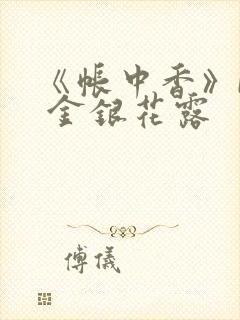 《帐中香》
金银花露
傅仪